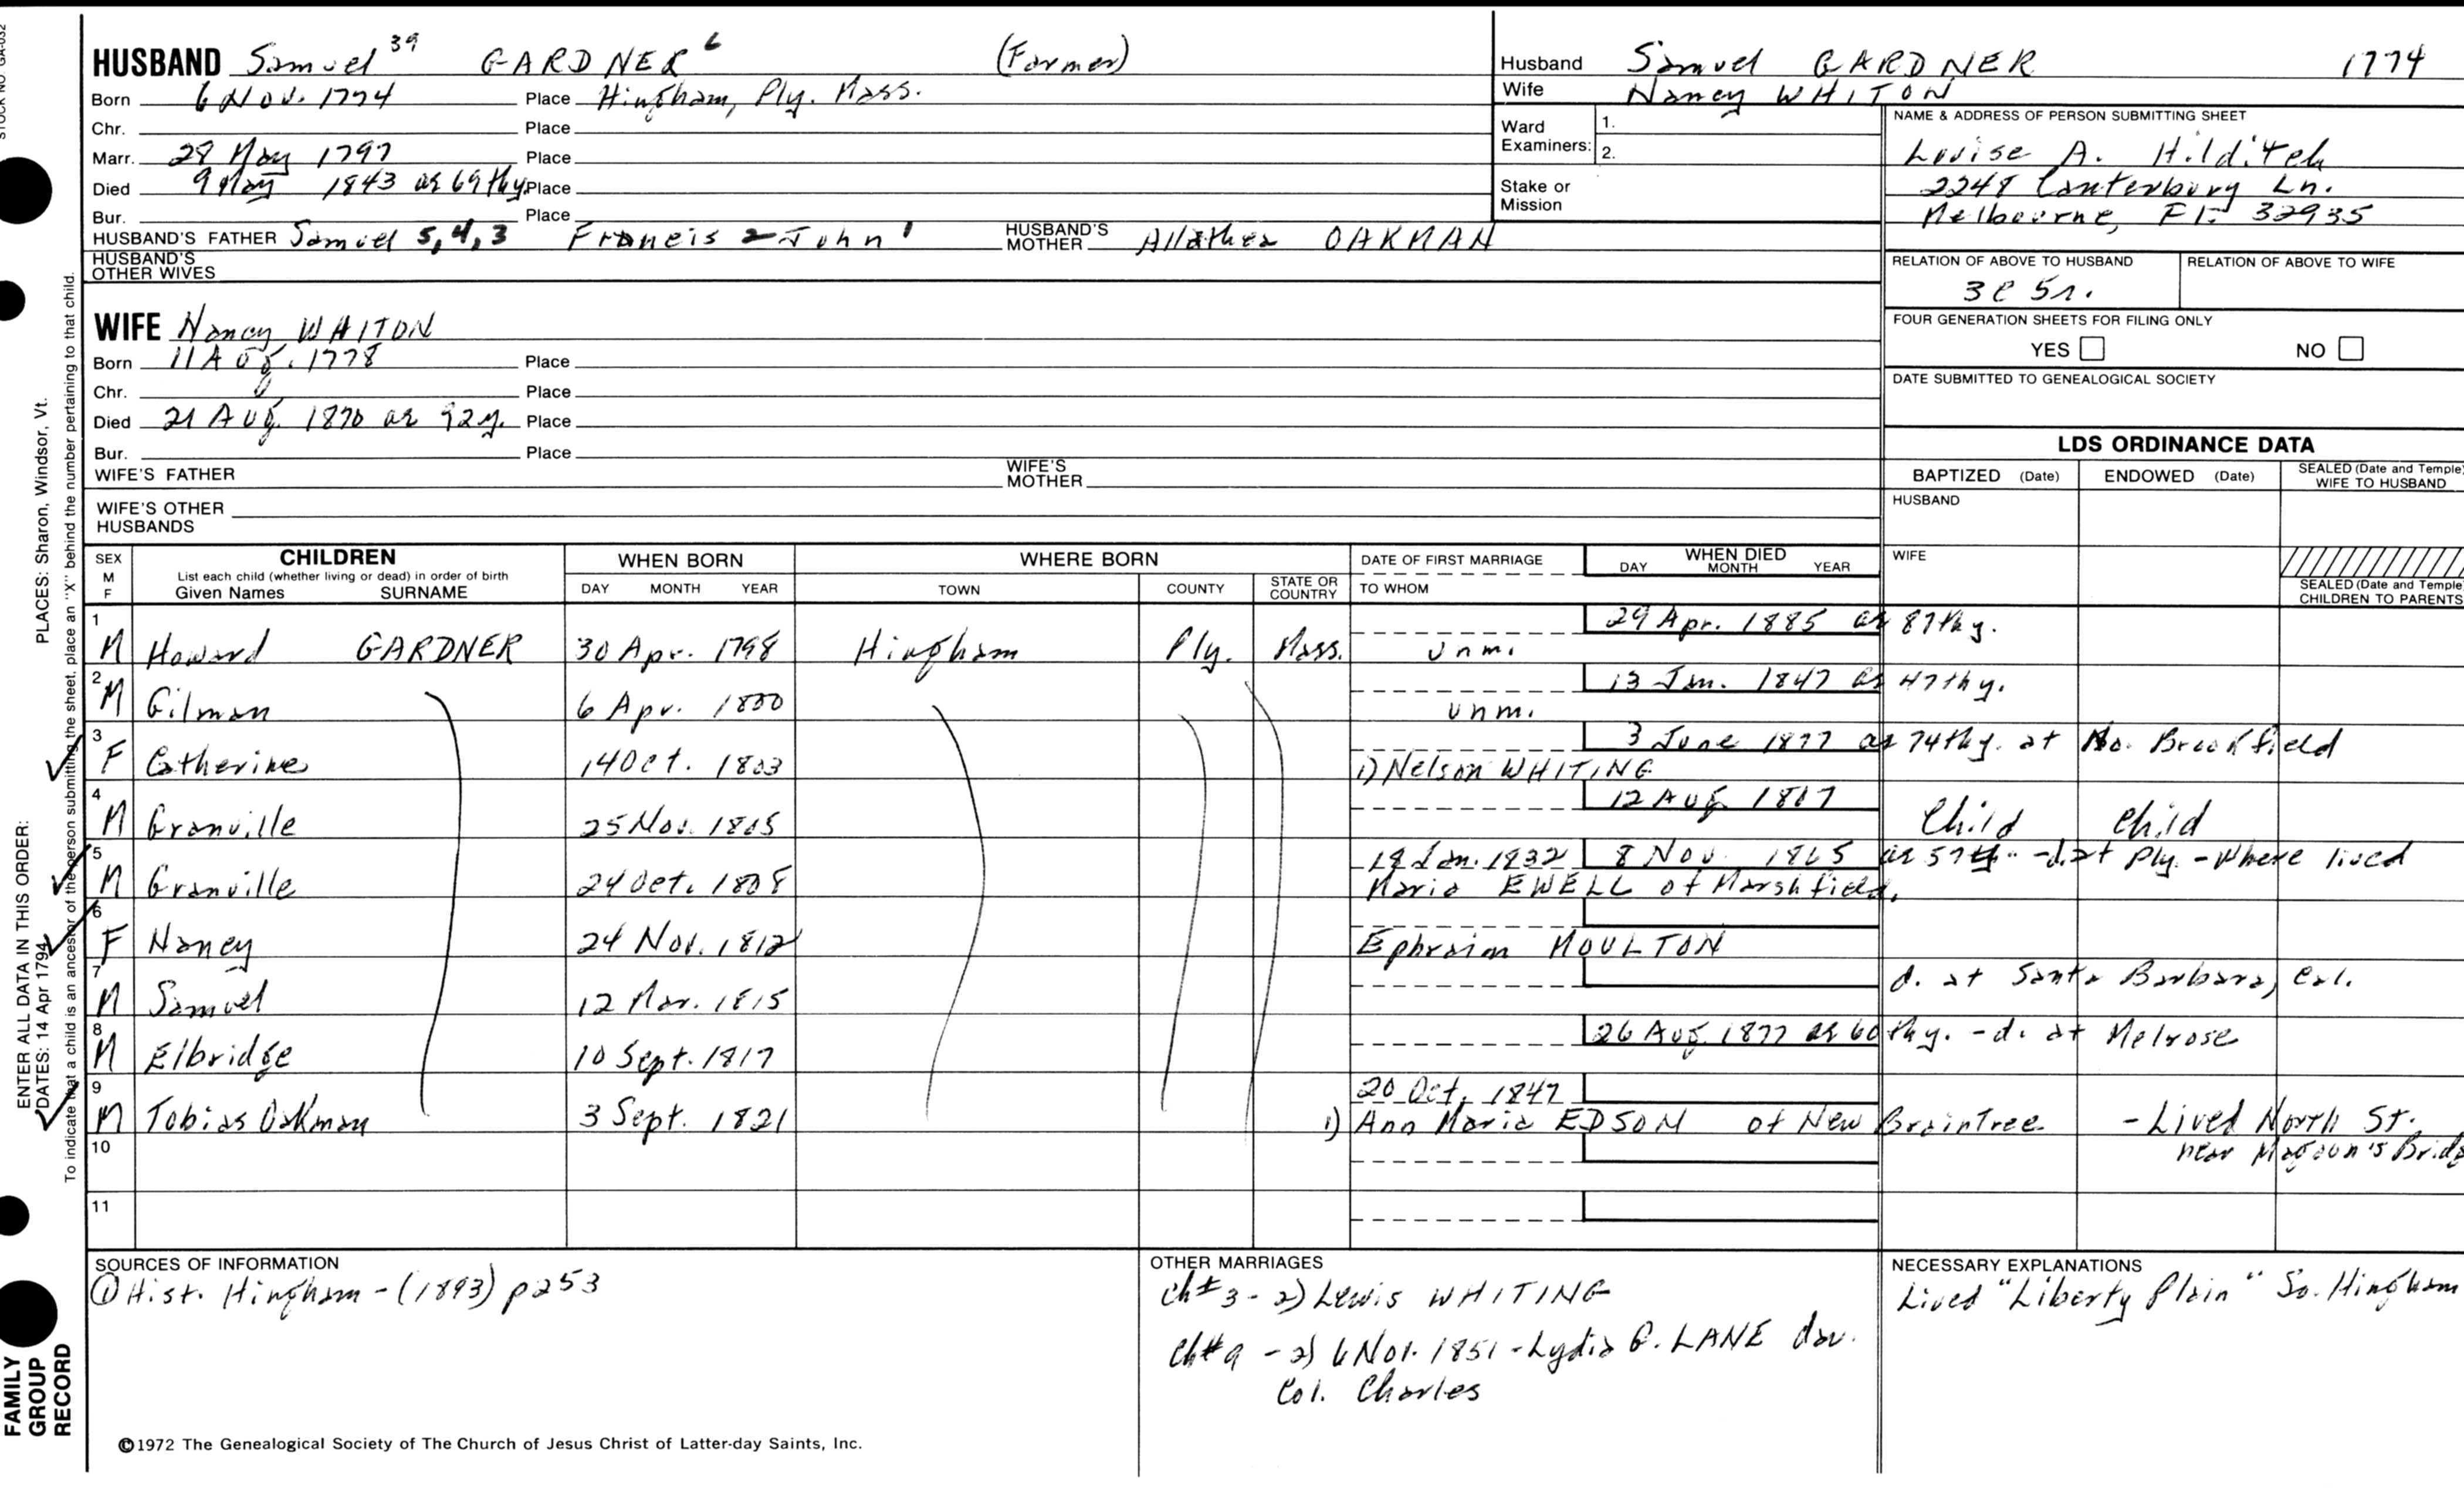 STOCK NO. GA-032
HUSBAND Samuel 39 GARDNER 6 (Farmer)
Born 6 Nov. 1774 Place Hingham, Ply. Mass.
Chr. Place
Marr. 28 May 1797 Place
Died 9 May 1843 ae 69thy Place
Bur. Place
HUSBAND'S FATHER Samuel 5,4,3 Francis 2 John 1 HUSBAND'S MOTHER OAKMAN
HUSBAND'S OTHER WIVES
Husband Samuel GARDNER 1774
Wife Nancy WHITON
Ward Examiners: 1.
2.
Stake or Mission
NAME & ADDRESS OF PERSON SUBMITTING SHEET
Louise A. Hilditch
2248 Canterbury Ln.
Melbourne, Fl. 32935
RELATION OF ABOVE TO HUSBAND RELATION OF ABOVE TO WIFE
3C 5r.
FOUR GENERATION SHEETS FOR FILING ONLY
YES NO
DATE SUBMITTED TO GENEALOGICAL SOCIETY
WIFE Nancy WHITON
Born 11 Aug. 1778 Place
Chr. Place
Died 21 Aug. 1870 ae 92y. Place
Bur. Place
WIFE'S FATHER WIFE'S MOTHER
WIFE'S OTHER HUSBANDS
LDS ORDINANCE DATA
BAPTIZED (Date) ENDOWED (Date) SEALED (Date and Temple) WIFE TO HUSBAND
HUSBAND
WIFE
SEALED (Date and Temple) CHILDREN TO PARENTS
SEX M F CHILDREN WHEN BORN WHERE BORN DATE OF FIRST MARRIAGE WHEN DIED
List each child (whether living or dead) in order of birth
Given Names SURNAME DAY MONTH YEAR TOWN COUNTY STATE OR COUNTRY TO WHOM DAY MONTH YEAR
1 29 Apr. 1885 ae 87thy.
M Howard GARDNER 30 Apr. 1798 Hingham Ply. Mass. unm.
2 13 Jan. 1847 ae 47thy.
M Gilman 6 Apr. 1800 unm.
3 3 June 1877 ae 74thy. at No. Brookfield
F Catherine 14 Oct. 1803 1) Nelson WHITING
4 12 Aug. 1807
M Granville 25 Nov. 1805 Child Child
5 8 Nov. 1865 ae 57th - d. at Ply. - Where lived
M Granville 24 Oct. 1808 Maria EWELL of Marshfield.
6
F Nancy 24 Nov. 1812 Ephraim MOULTON
7 d. at Santa Barbara, Cal.
M Samuel 12 Mar. 1815
8 26 Aug. 1877 ae 60thy. - d. at Melrose
M Elbridge 10 Sept. 1817
9 20 Oct. 1847
M Tobias Oakman 3 Sept. 1821 1) Ann Maria EDSON of New BrainTree - Lived North St.
near Magoun's
10
11
SOURCES OF INFORMATION
① Hist. Hingham - (1893) p253
OTHER MARRIAGES
ch# 3 - 2) Lewis WHITING
ch# 9 - 2) 6 Nov. 1851 - Lydia LANE dau.
Col. Charles
NECESSARY EXPLANATIONS
Lived "Liberty Plain" So. Hingham
©1972 The Genealogical Society of The Church of Jesus Christ of Latter-day Saints, Inc.
ENTER ALL DATA IN THIS ORDER:
DATES: 14 Apr 1794 PLACES: Sharon, Windsor, Vt.
To indicate that a child is an ancestor of the person submitting the sheet, place an "X" behind the number pertaining to that child.
FAMILY
GROUP
RECORD